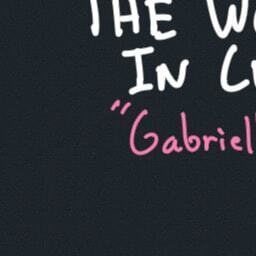 THE W
IN C
"Gabriel"